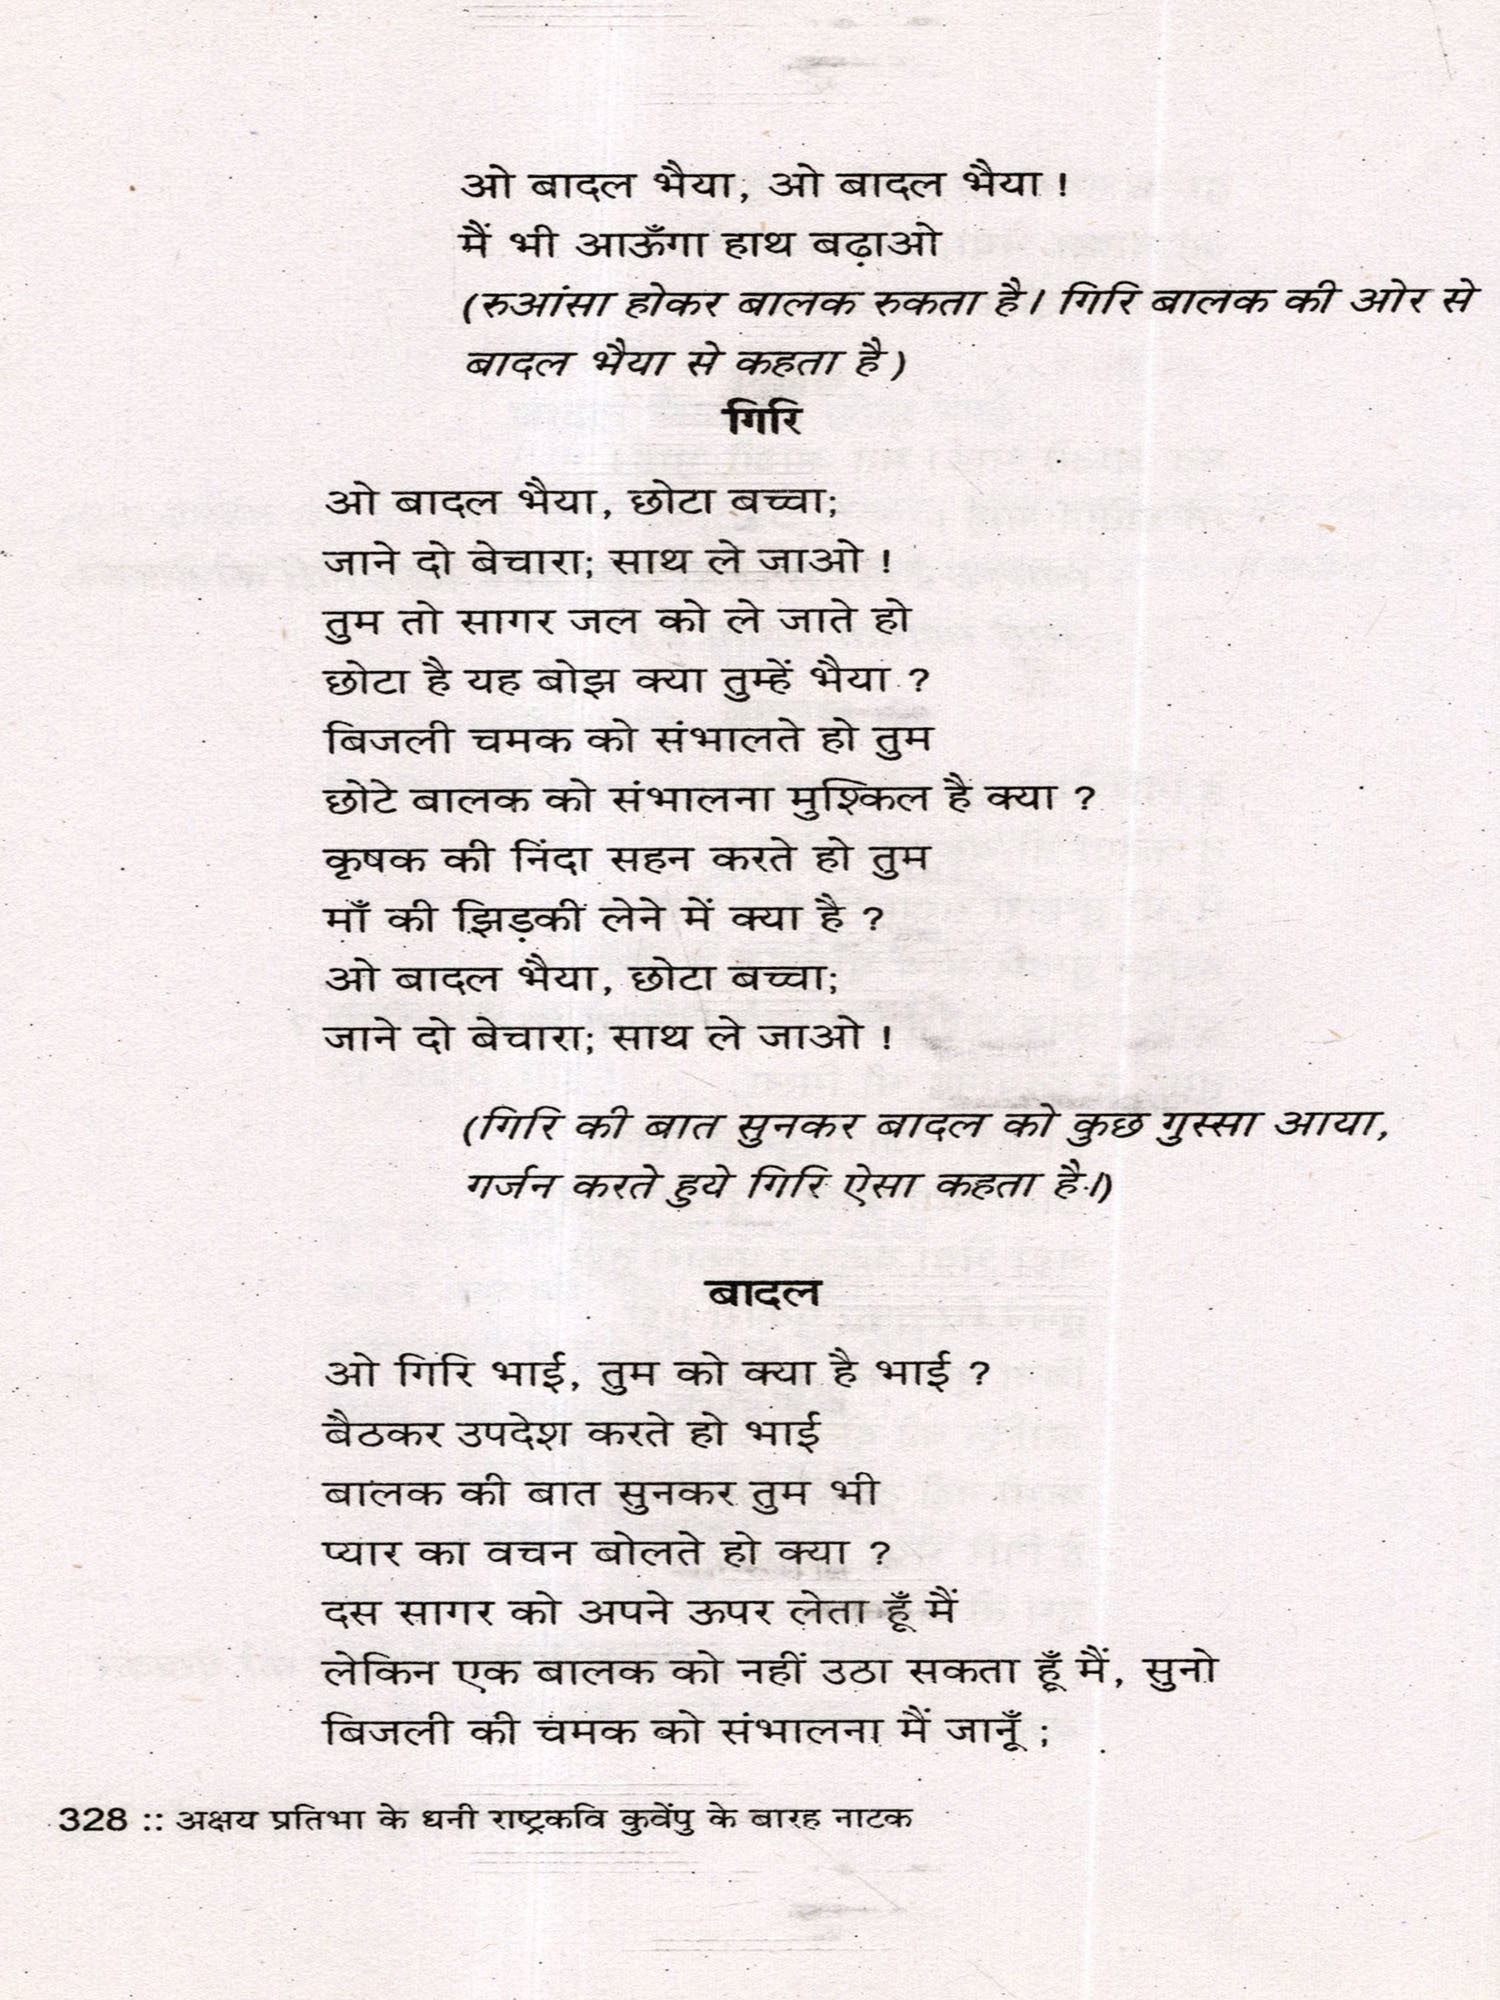 ओ बादल भैया, ओ बादल भैया !
मैं भी आऊँगा हाथ बढ़ाओ
(रुआंसा होकर बालक रुकता है। गिरि बालक की ओर से
बादल भैया से कहता है)
गिरि
ओ बादल भैया, छोटा बच्चा;
जाने दो बेचारा; साथ ले जाओ !
तुम तो सागर जल को ले जाते हो
छोटा है यह बोझ क्या तुम्हें भैया ?
बिजली चमक को संभालते हो तुम
छोटे बालक को संभालना मुश्किल है क्या ?
कृषक की निंदा सहन करते हो तुम
माँ की झिड़की लेने में क्या है ?
ओ बादल भैया, छोटा बच्चा;
जाने दो बेचारा; साथ ले जाओ !
(गिरि की बात सुनकर बादल को कुछ गुस्सा आया,
गर्जन करते हुये गिरि ऐसा कहता है।)
बादल
ओ गिरि भाई, तुम को क्या है भाई ?
बैठकर उपदेश करते हो भाई
बालक की बात सुनकर तुम भी
प्यार का वचन बोलते हो क्या ?
दस सागर को अपने ऊपर लेता हूँ मैं
लेकिन एक बालक को नहीं उठा सकता हूँ मैं, सुनो
बिजली की चमक को संभालना मैं जानूँ ;
328 :: अक्षय प्रतिभा के धनी राष्ट्रकवि कुवेंपु के बारह नाटक